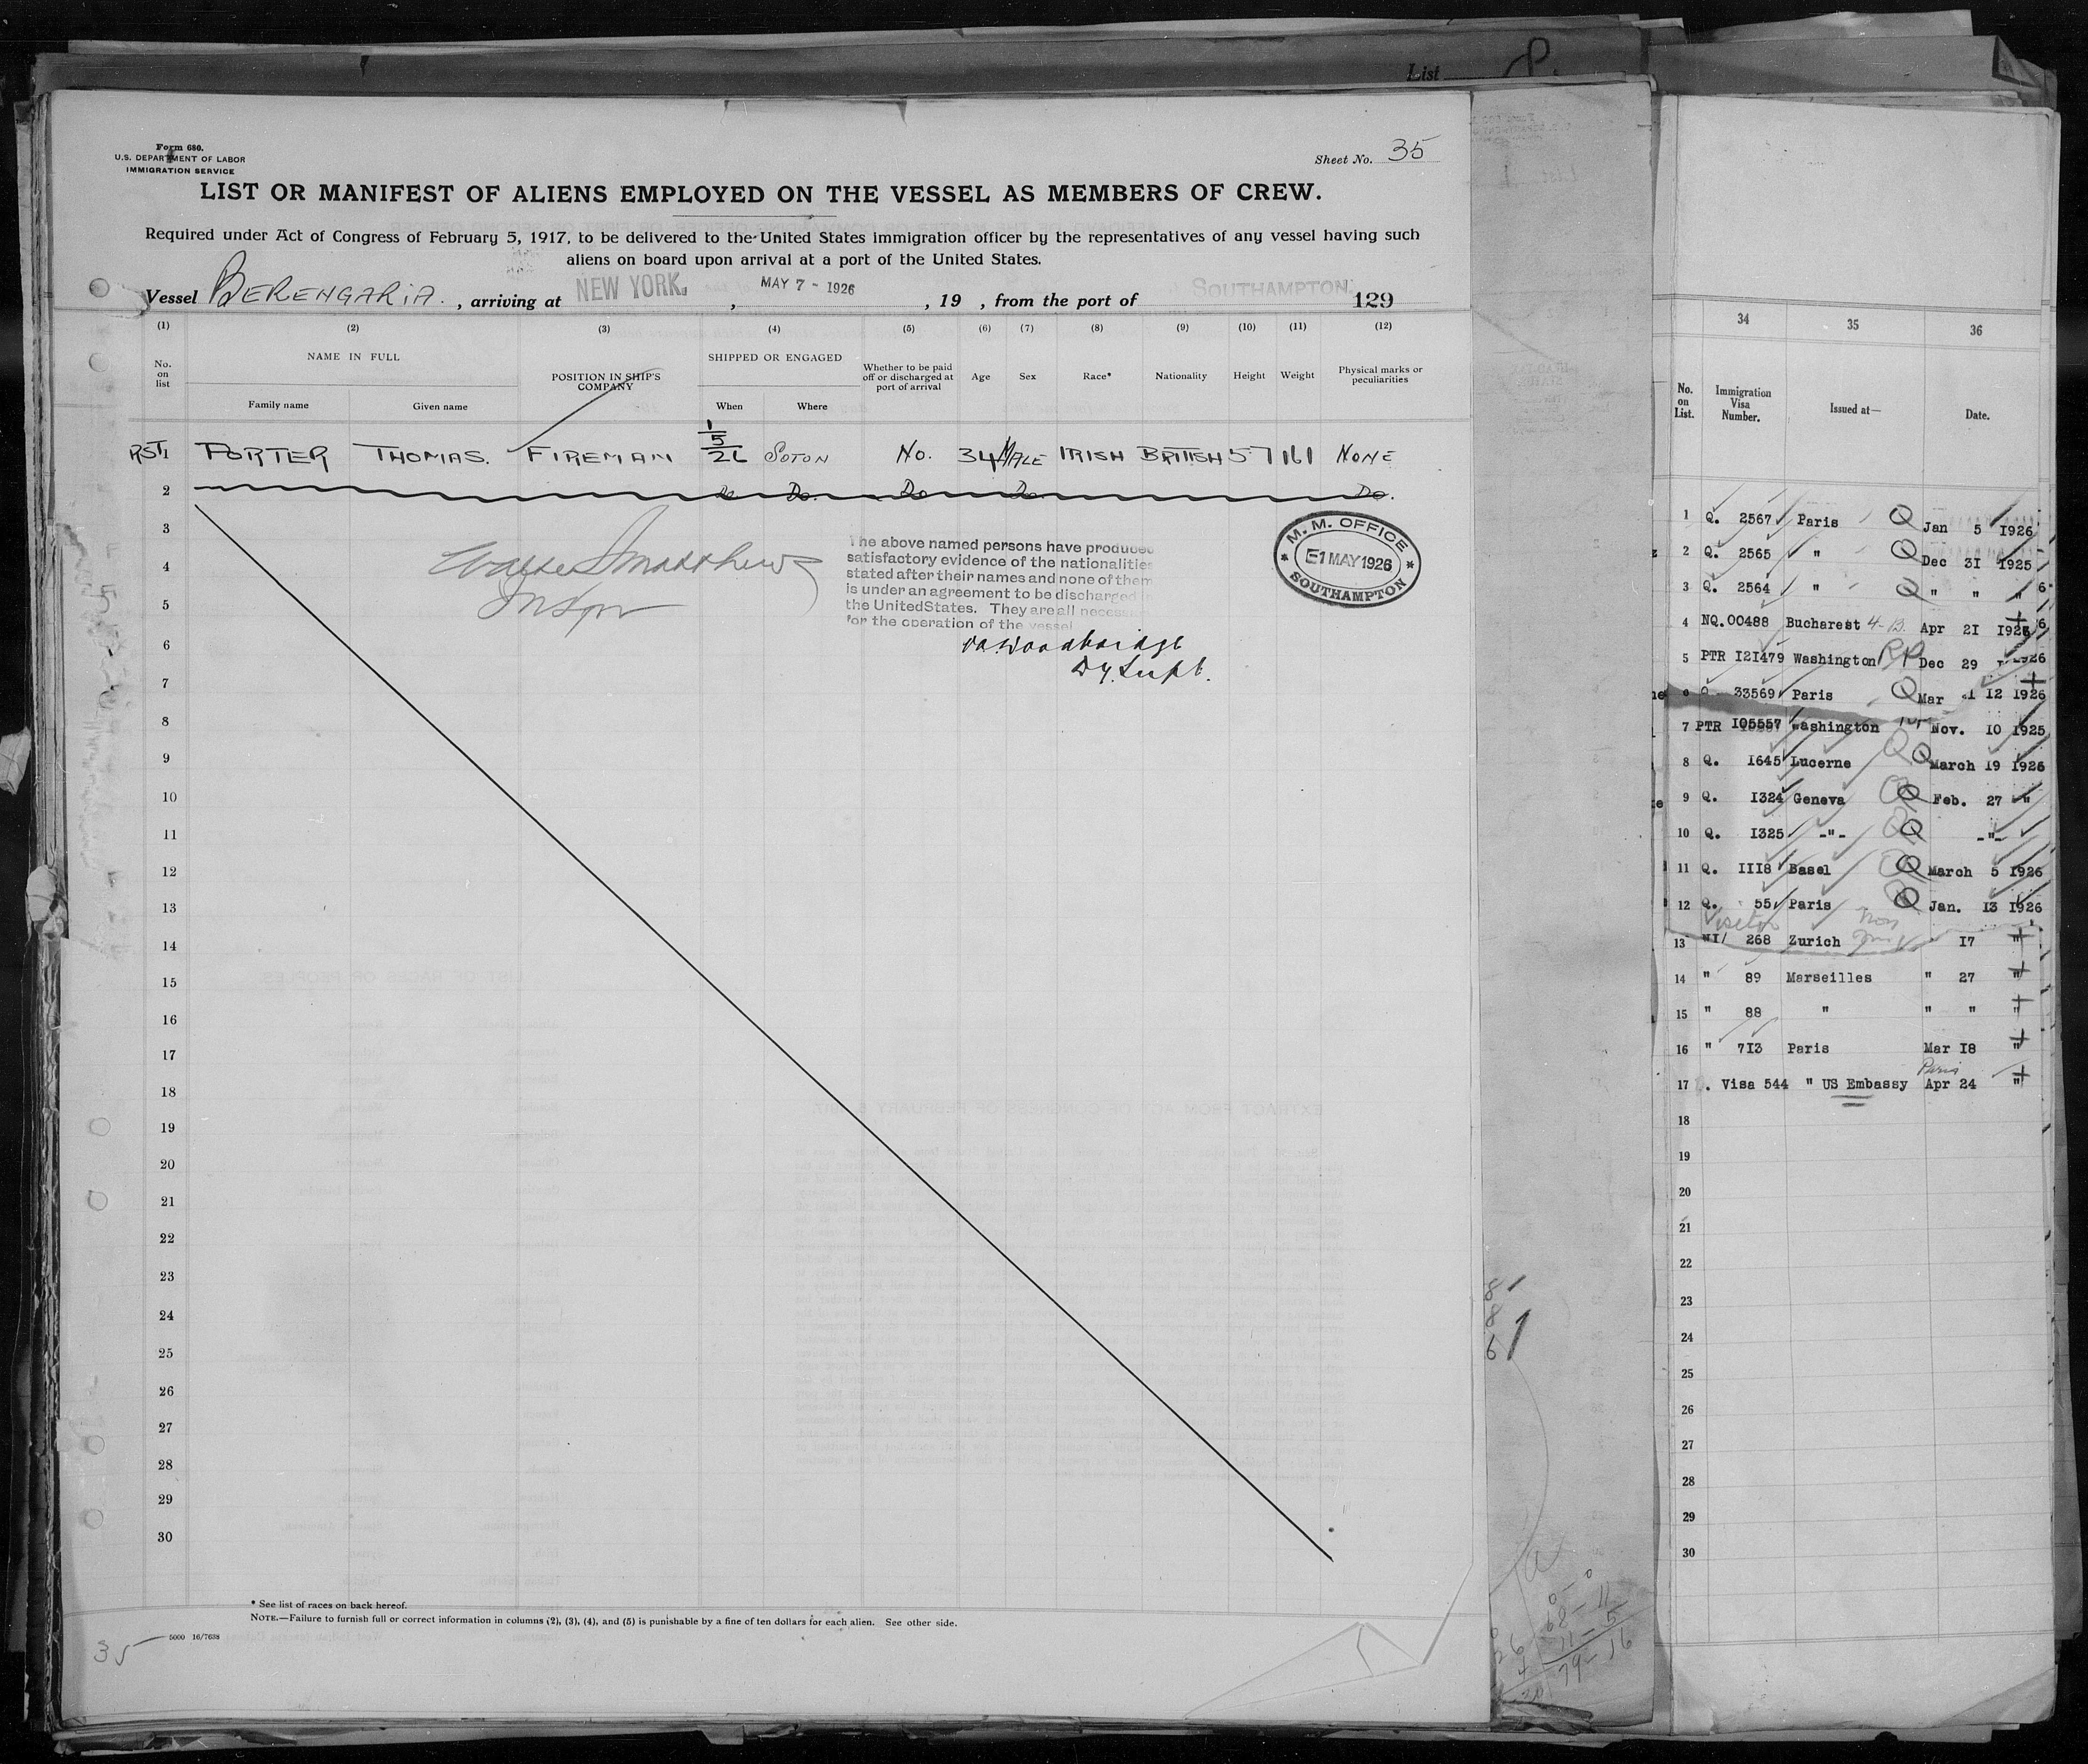 List
Form 680.
U.S. DEPARTMENT OF LABOR
IMMIGRATION SERVICE
Sheet No. 35
LIST OR MANIFEST OF ALIENS EMPLOYED ON THE VESSEL AS MEMBERS OF CREW.
Required under Act of Congress of February 5, 1917, to be delivered to the United States immigration officer by the representatives of any vessel having such
aliens on board upon arrival at a port of the United States.
Vessel BERENGARIA. , arriving at NEW YORK. , MAY 7 - 1926 , 19 , from the port of SOUTHAMPTON. 129
(1) (2) (3) (4) (5) (6) (7) (8) (9) (10) (11) (12)
No. on list NAME IN FULL POSITION IN SHIP'S COMPANY SHIPPED OR ENGAGED Whether to be paid off or discharged at port of arrival Age Sex Race* Nationality Height Weight Physical marks or peculiarities
Family name Given name When Where
RST 1 PORTER THOMAS. FIREMAN 1/5/26 SOTON No. 34 MALE IRISH BRITISH 5 7 161 NONE
2 Do Do. Do Do. Do.
3
4
5
6
7
8
9
10
11
12
13
14
15
16
17
18
19
20
21
22
23
24
25
26
27
28
29
30
The above named persons have produced
satisfactory evidence of the nationalities
stated after their names and none of them
is under an agreement to be discharged in
the United States. They are all necessary
for the operation of the vessel
M. M. OFFICE
E1 MAY 1926
SOUTHAMPTON
Dy. Supt.
* See list of races on back hereof.
NOTE.—Failure to furnish full or correct information in columns (2), (3), (4), and (5) is punishable by a fine of ten dollars for each alien. See other side.
5000 16/7638
35
34 35 36
No. on List. Immigration Visa Number. Issued at— Date.
1 Q. 2567 Paris Q Jan 5 1926
2 Q. 2565 " Q Dec 31 1925
3 Q. 2564 " Q " " "
4 NQ.00488 Bucharest Apr 21 1926
5 PTR 121479 Washington Dec 29 1926
6 Q 33569 Paris Q Mar 12 1926
7 PTR 105557 Washington Nov. 10 1925
8 Q. 1645 Lucerne Q March 19 1926
9 Q. 1324 Geneva Q Feb. 27 "
10 Q. 1325 -"- Q -"-
11 Q. 1118 Basel Q March 5 1926
12 Q. 55 Paris Q Jan. 13 1926
13 268 Zurich 17 "
14 " 89 Marseilles " 27 "
15 " 88 " " " "
16 " 713 Paris Mar 18 "
Paris
17 . Visa 544 " US Embassy Apr 24 "
18
19
20
21
22
23
24
25
26
27
28
29
30